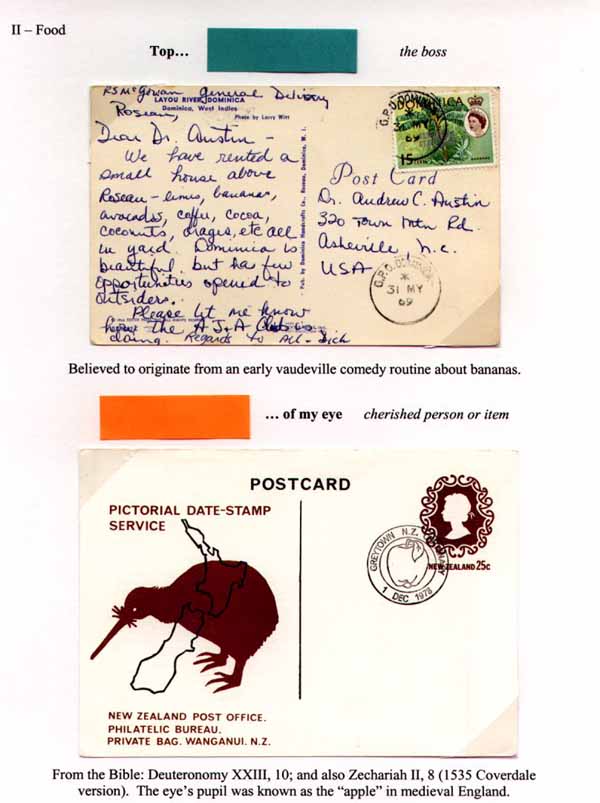 II – Food
Top... the boss
RS McGowan General Delivery
LAYOU RIVER, DOMINICA
Dominica, West Indies
Roseau,
Photo by Larry Witt
Dear Dr. Austin –
We have rented a
small house above
Roseau – limes, bananas,
avocados, coffee, cocoa,
coconuts, oranges, etc all
in yard. Dominica is
beautiful but has few
opportunities opened to
outsiders.
Please let me know
how the A.J.A
doing. Regards to All –
Pub. by Dominica Handcrafts Co., Roseau, Dominica, W. I.
DOMINICA
15 CENTS
BANANAS
G.P.O. DOMINICA
31 MY
69
Post Card
Dr. Andrew C. Austin
320 Town Mtn Rd.
Asheville, N.C.
USA
G.P.O. DOMINICA
*
31 MY
69
Believed to originate from an early vaudeville comedy routine about bananas.
... of my eye cherished person or item
POSTCARD
PICTORIAL DATE-STAMP
SERVICE
GREYTOWN N.Z.
1 DEC 1978
NEW ZEALAND 25c
NEW ZEALAND POST OFFICE.
PHILATELIC BUREAU.
PRIVATE BAG. WANGANUI. N.Z.
From the Bible: Deuteronomy XXIII, 10; and also Zechariah II, 8 (1535 Coverdale
version). The eye's pupil was known as the “apple” in medieval England.